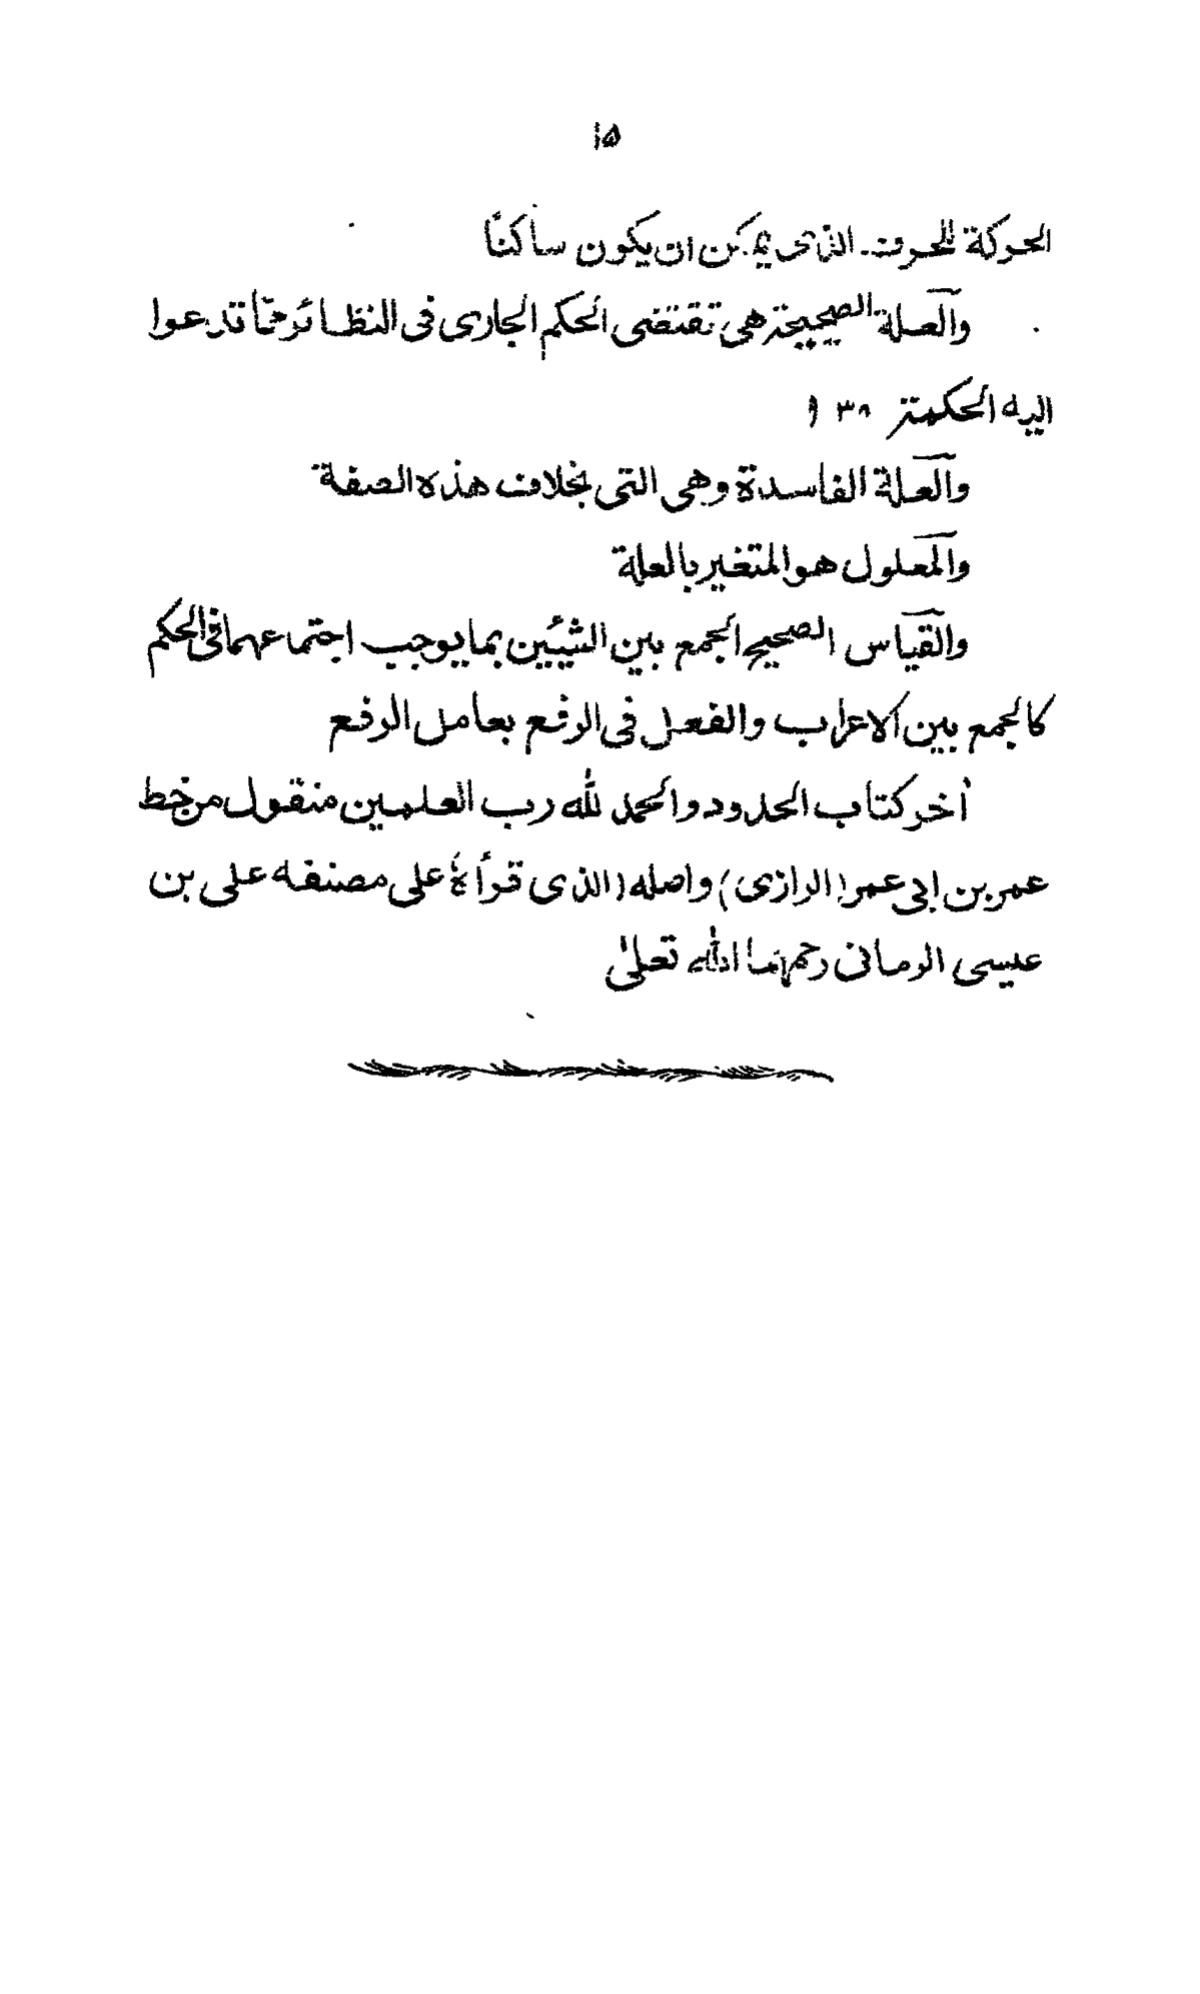 ١٥
الحركة للحرف الذى يمكن ان يكون ساكنًا
والعلة الصحيحة هى تقتضى الحكم الجارى فى النظائر ممّا تدعوا
اليه الحكمة ٣٨ و
والعلة الفاسدة وهى التى بخلاف هذه الصفة
والمعلول هو المتغير بالعلة
والقياس الصحيح الجمع بين الشيئين بما يوجب اجتماعهما فى الحكم
كالجمع بين الاعراب والفعل فى الرفع بعامل الرفع
أخر كتاب الحدود والحمد لله رب العلمين منقول من خط
عمر بن ابى عمر (الرازى) واصله (الذى قرأهٗ على مصنفه على بن
عيسى الرمانى رحمهما الله تعلىٰ